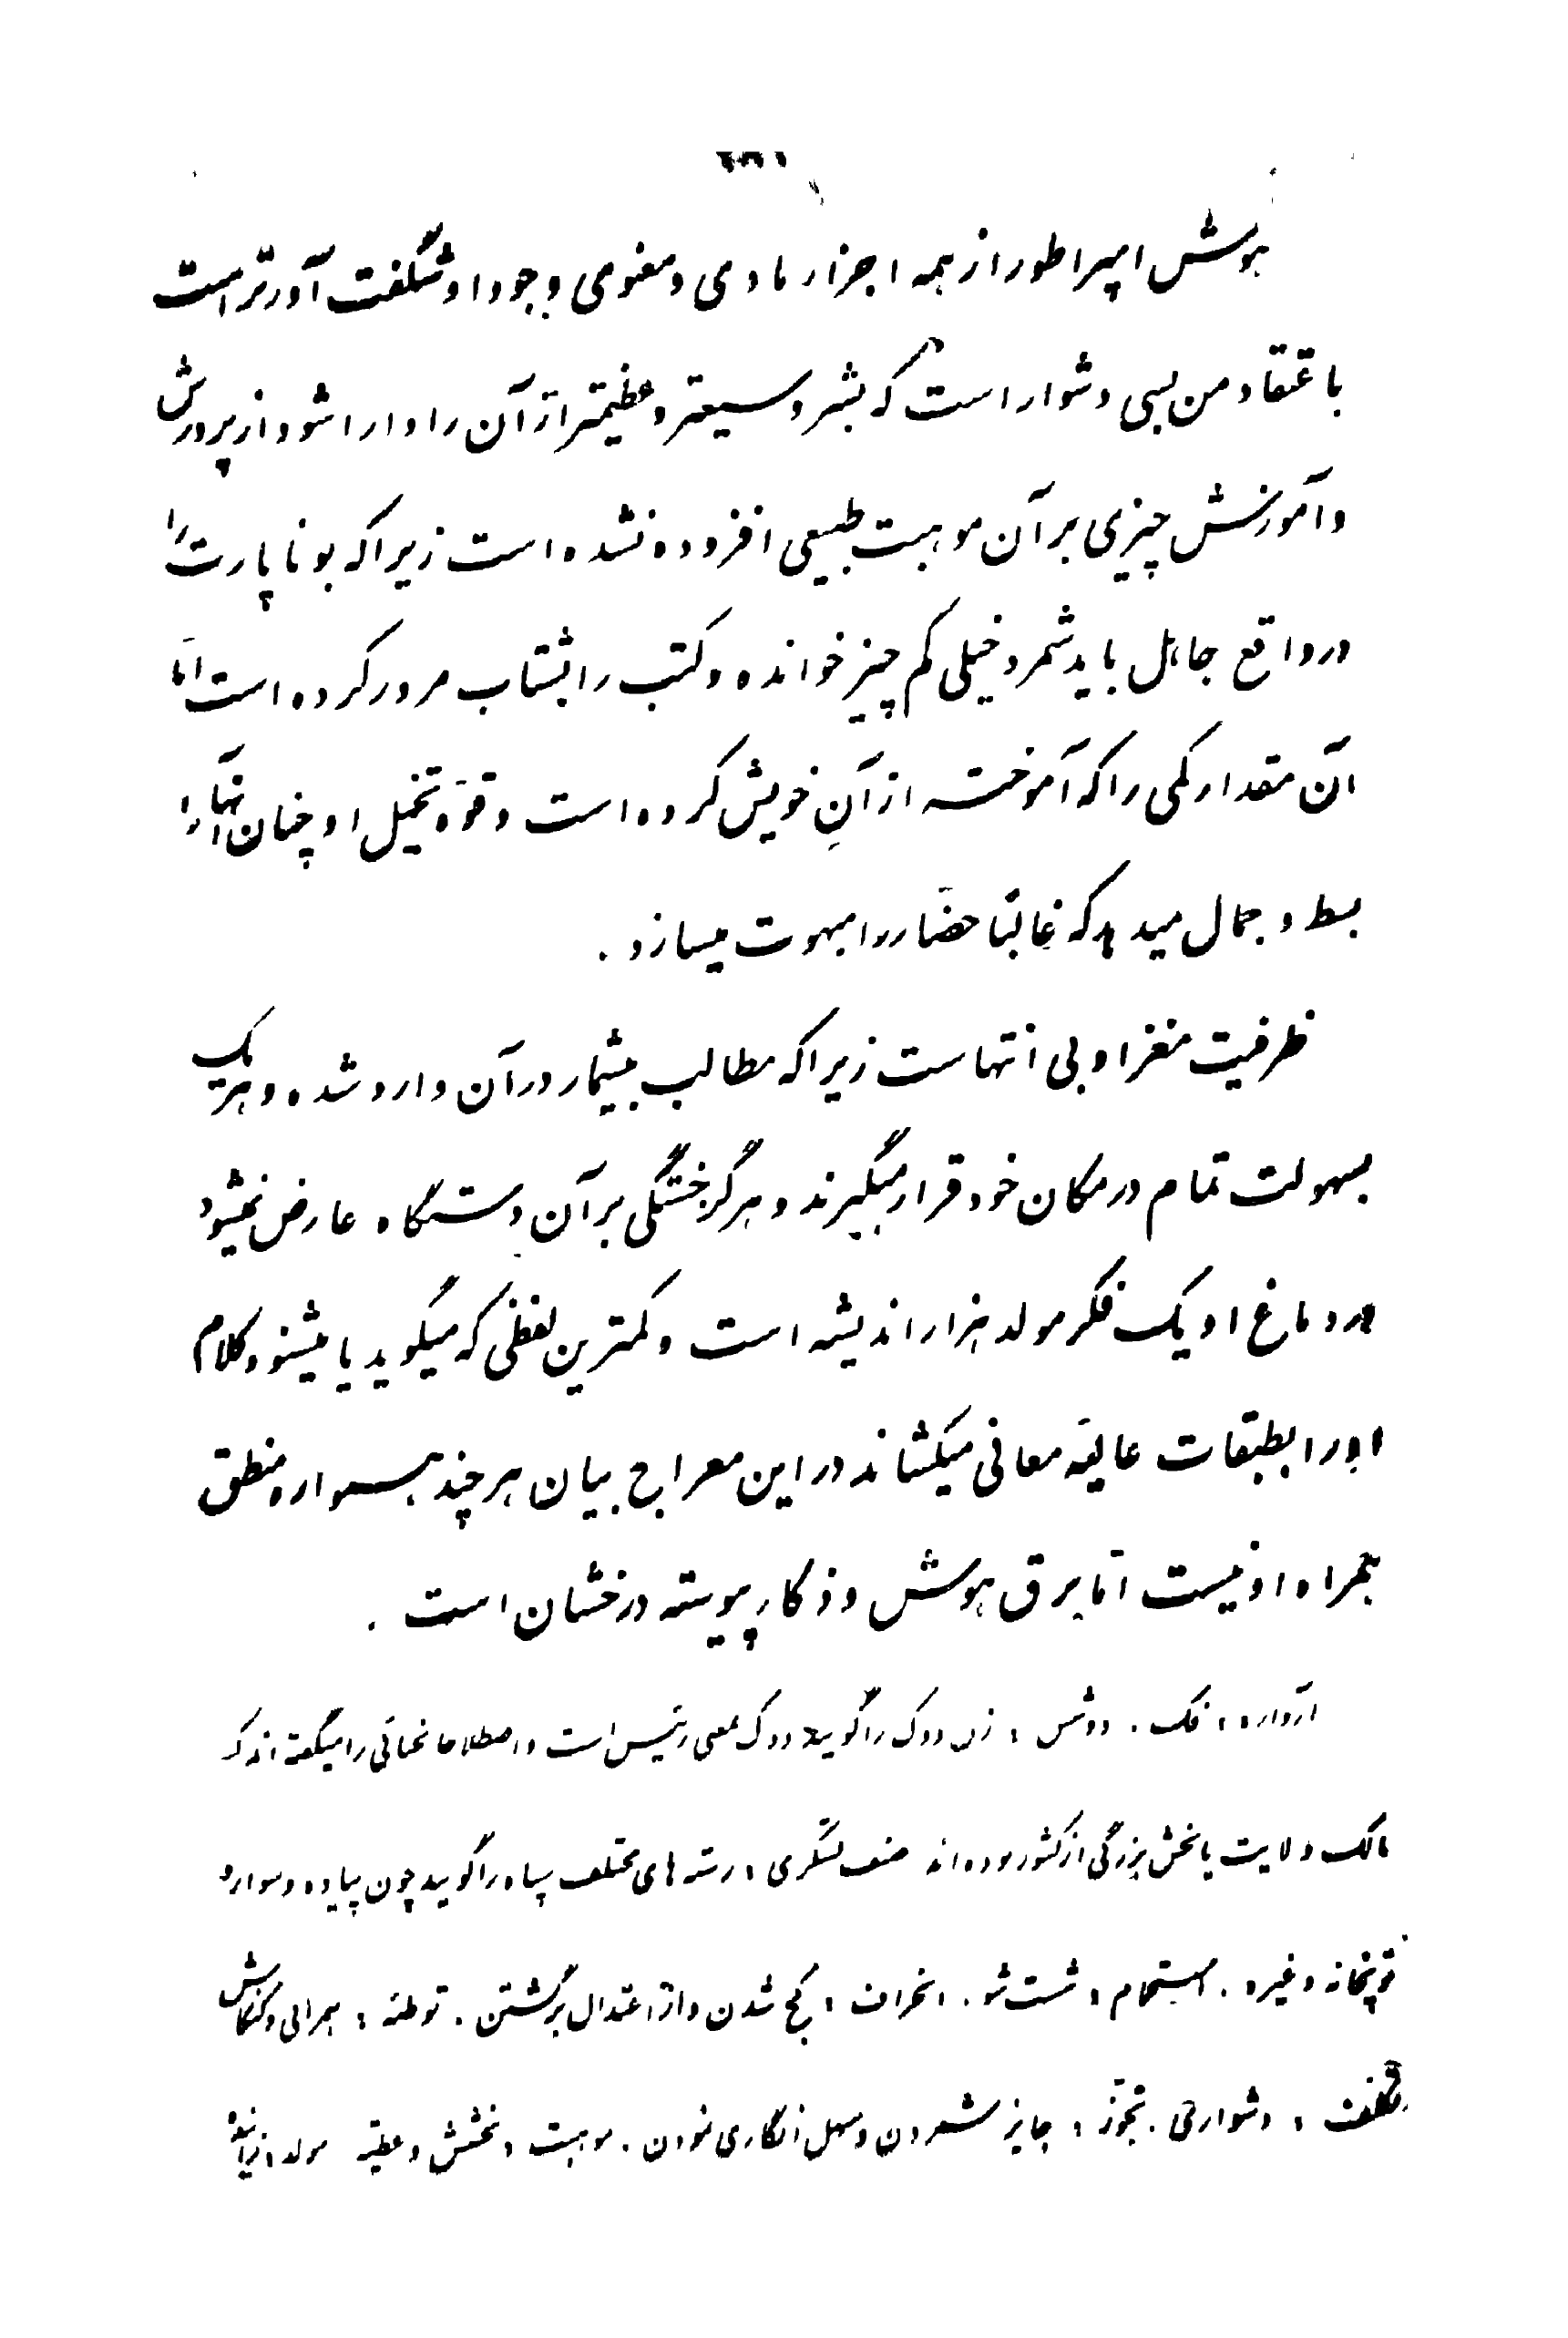 هوش امپراطور از همه اجزاء مادی و معنوی وجود او شگفت آورتر است
باعتقاد من بسی دشوار است که بشر وسیعتر و عظیمتر از آن را دارا شود از پرورش
و آموزش چیزی بر آن موهبت طبیعی افزوده نشده است زیرا که بوناپارت را
در واقع جاهل باید شمرد خیلی کم چیز خوانده و کتب را بشتاب مرور کرده است امّا
آن مقدار کمی را که آموخته از آنِ خویش کرده است و قوّه تخیل او چنان آنها را
بسط و جمال میدهد که غالباً حضّار را مبهوت میسازد .
ظرفیت مغز او بی انتهاست زیرا که مطالب بیشمار در آن وارد شده و هر یک
بسهولت تمام در مکان خود قرار میگیرند و هرگز خستگی بر آن دستگاه عارض نمیشود
در دماغ او یک فکر مولد هزار اندیشه است و کمترین لفظی که میگوید یا میشنود کلام
او را بطبقات عالیه معانی میکشاند در این معراج بیان هر چند همواره منطق
همراه او نیست امّا برق هوش و ذکاء پیوسته درخشان است .
آرواره ، فک . دوشس ، زن دوک را گویند دوک بمعنی رئیس است و اصطلاحا نجبائی را میگفته اند که
مالک ولایت یا بخش بزرگی از کشور بوده اند صنف لشگری ، رسته های مختلف سپاه را گویند چون پیاده و سواره
توپخانه و غیره . استحمام ، شست شو . انحراف ، کج شدن و از اعتدال برگشتن . توطئه ، همراهی و کنکاش
، دشواری . تجوّز ، جایز شمردن و سهل انگاری نمودن . موهبت ، بخشش و عطیّه مولد ، زاینده